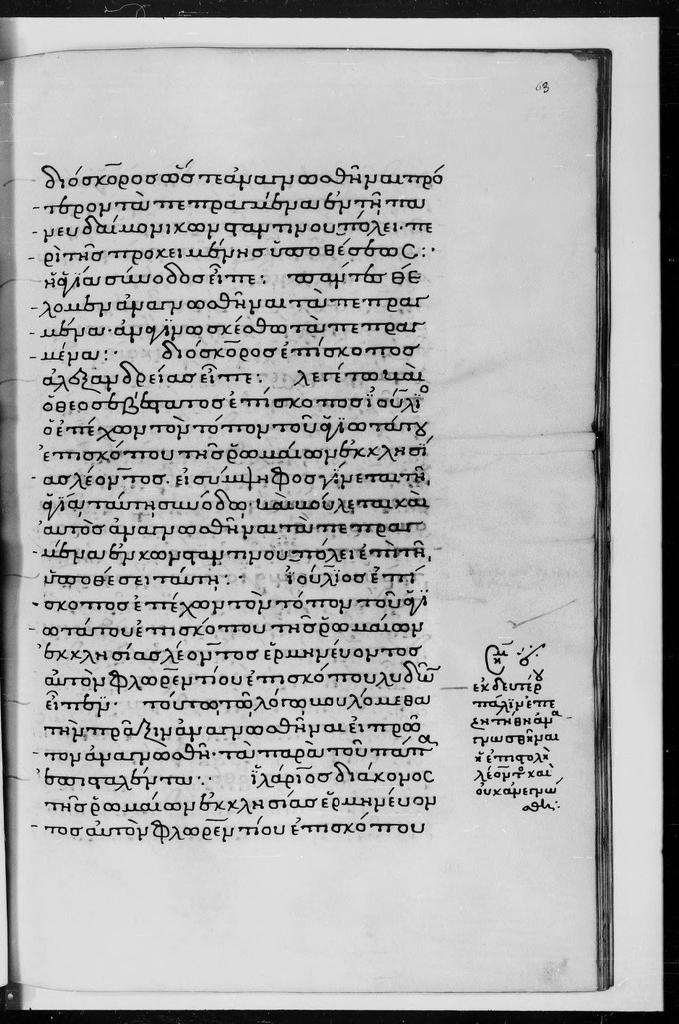 63
διόσκορος ὥστε ἀναγνωσθῆναι πρό
τερον τὰ πεπραγμένα ἐν τῆ πα
νευδαίμονι κωνσταντίνου πόλει· πε
ρὶ τῆς προκειμένης ὑποθέσεως:·
ἡ ἁγία σύνοδος εἶπε: πάντες θέ
λομεν ἀναγνωσθῆναι τὰ πεπραγ
μένα· ἀναγινωσκέσθω τὰ πεπραγ
μένα:· διόσκορος ἐπίσκοπος
ἀλεξανδρείας εἶπε: λεγέτω καὶ
ὁ θεοσεβέστατος ἐπίσκοπος ἰούλιος
ὁ ἐπέχων τὸν τόπον τοῦ ἁγιωτάτου
ἐπισκόπου τῆς ῥωμαίων ἐκκλησί
ας λέοντος· εἰ σύμψηφος γίνεται τῆ
ἁγία ταύτη συνόδω· καὶ βούλεται καὶ
αὐτὸς ἀναγνωσθῆναι τὰ πεπραγ
μένα ἐν κωνσταντίνου πόλει ἐπὶ τῆ
ὑποθέσει ταύτη:· ἰούλιος ἐπί
σκοπος ἐπέχων τὸν τόπον τοῦ ἁγι
ωτάτου ἐπισκόπου τῆς ῥωμαίων
ἐκκλησίας λέοντος ἑρμηνεύοντος
αὐτὸν φλωρεντίου ἐπισκόπου λυδῶν
εἶπεν· τούτω τῶ λόγω βουλόμεθα
τὴν πρᾶξιν ἀναγνωσθῆναι εἰ πρῶ
τον ἀναγνωσθῆ· τὰ παρὰ τοῦ πάπα
ἐπισταλέντα:· ἱλάριος διάκονος
τῆς ῥωμαίων ἐκκλησίας ἑρμηνεύον
τος αὐτὸν φλωρεντίου ἐπισκόπου
ἐκ δευτέρου
πάλιν ἐπε
ζητήθη ἀνα
γνωσθῆναι
ἡ ἐπιστολὴ
λέοντος καὶ
οὐκ ἀνεγνώ
σθη: